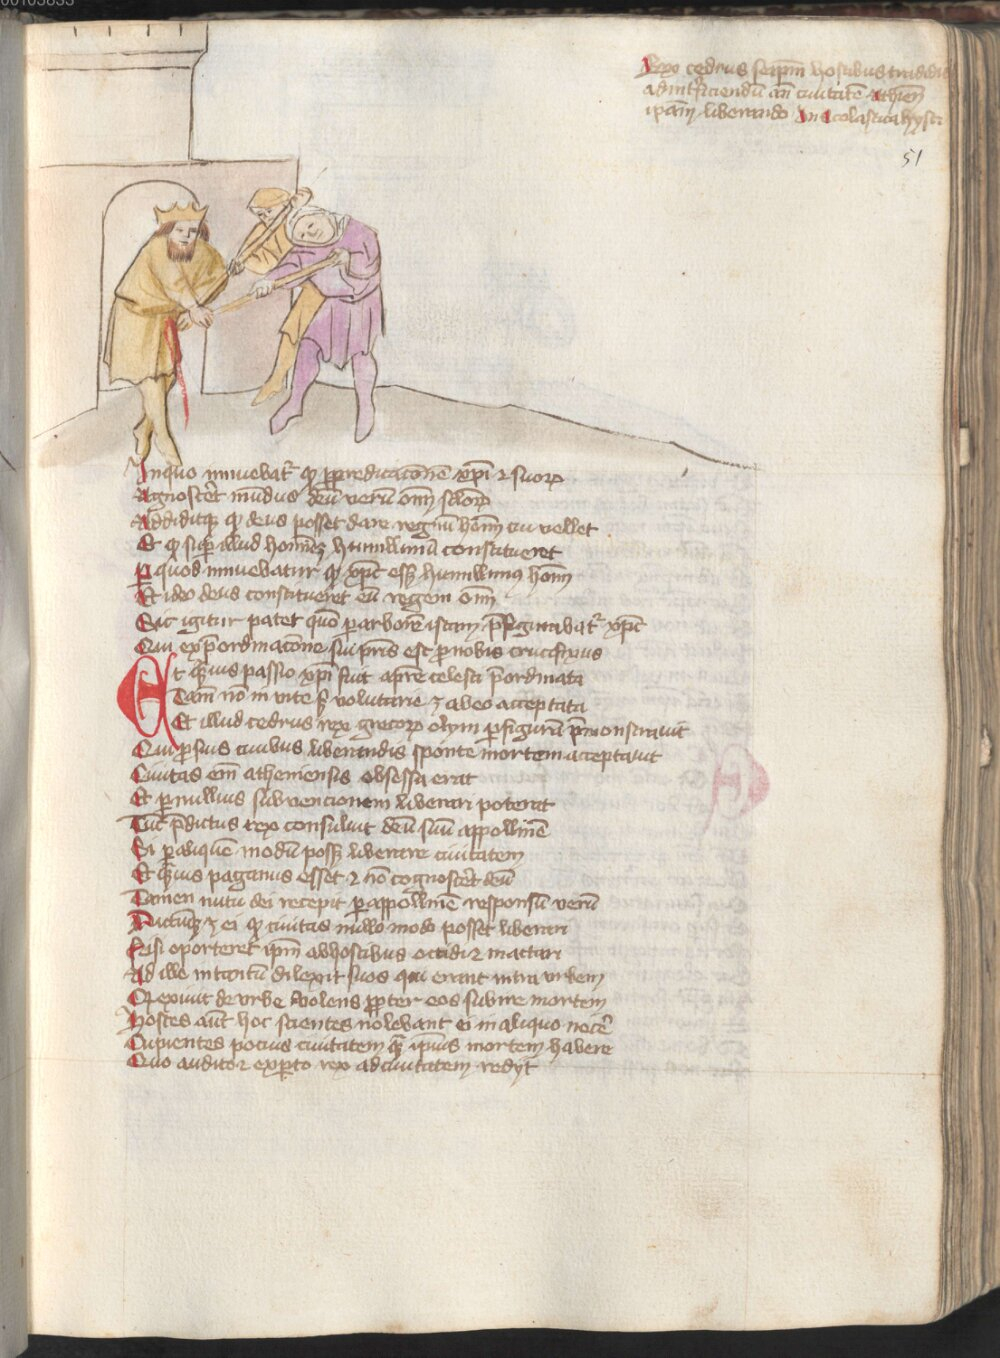 Rex cedrus seip̄m hostibus tradidit
ad int̄ficiendū an̄ ciuitatē Athien̄
ip̄am liberando In scolastica hystr
51
In quo innuebat᷑ qꝫ p̱ p̱redicacōnē xp̄i ⁊ suoꝝ
Agnosc̄et mūdus deū verū om̄ sc̄loꝝ
Addiditqꝫ qꝫ deus posset dare regnū hom̄ cui vellet
Et qꝫ sup̄ illud homīeꝫ humillimū constitueret
p̱ quod innuebatur qꝫ xp̄c esset humillimꝰ hom̄
Et ideo deus constitueret eū regem om̄
Sic igitur patet quō p̱ arborē istam p̄figurabat᷑ xp̄c
Qui ex p̄ordinacōne sui pr̄is est p̱ nobis crucifixus
Et q̄uis passio xp̄i fuit a pr̄e celesti p̄ordinata
Tam̄ nō inuite sꝫ voluntarie ē ab eo acceptata
Et illud cedrus rex grecoꝝ olym p̱ figurā p̄monstrauit
Qui p̱ suis ciuibus liberandis sponte mortem acceptauit
Ciuitas em̄ atheniensis obsessa erat
Et p̱ nullius subuencionem liberari poterat
Tūc p̄dictus rex consuluit deū suū appollinē
Si p̱ aliquē modū possꝫ liberare ciuitatem
Et q̄uis paganus esset ⁊ nō cognosc̄et deū
Tamen nutu dei recepit p̱ appollinē responsū verū
Dictūqꝫ ē ei qꝫ ciuitas nullo modo posset liberari
Nisi oporteret ip̄m ab hostibus occidi ⁊ mactari
At ille in tantū dilexit suos qui erant intra vrbem
Qꝫ exiuit de vrbe volens p̱pter eos subire mortem
Hostes aūt hoc scientes nolebant ei in aliquo nocē
Cupientes pocius ciuitatem q̄ ipīus mortem habere
Quo audito ⁊ exp̱to rex ad ciuitatem redijt